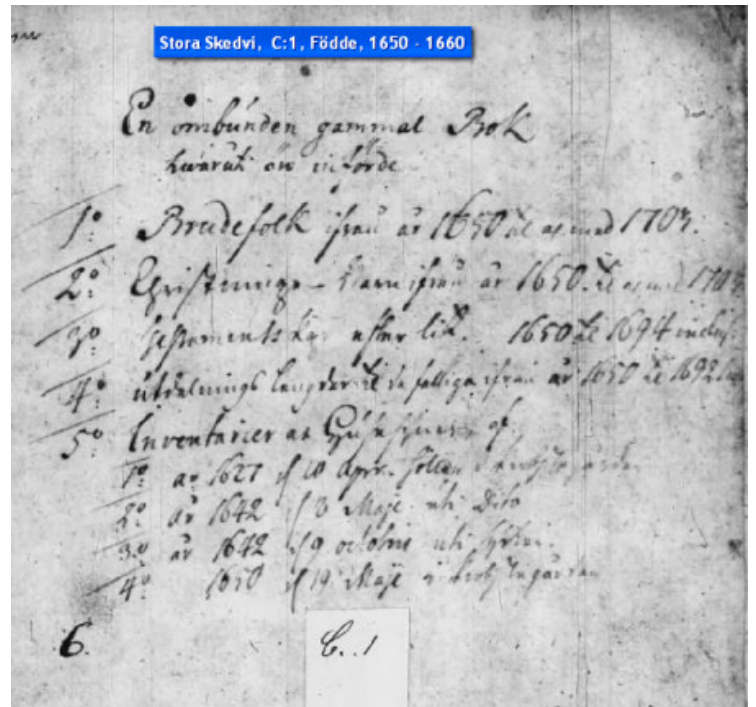 Stora Skedvi, C:1, Födde, 1650 - 1660
En ombunden gammal Bok
hwaruti än införde
1º Brudefolk ifrån år 1650 til 1703.
2º Christninge-barn ifrån år 1650. til 1703
3º Testaments efter lik. 1650 til 1694 inclus.
4º utdelnings Längder til de fattiga ifrån år 1650 til 1692
5º Inventarier
1º år 1627 d 10 Apr.
2º år 1642 d 3 Maje uti Dito
3º år 1642 d 9 octobris uti
4º 1650 d 19 Maje
6.
C. 1